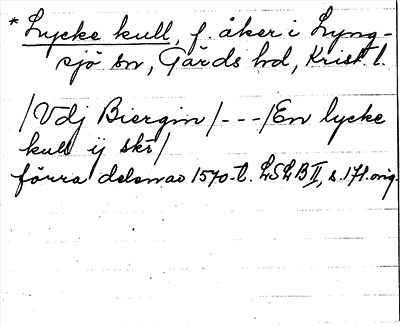 * Lycke kull, f. åker i Lyng-
sjö sn, Gärds hd, Krist. l.
/Vdj Biergin/---/En lycke
kull ij skr/
förra delen av 1570-t. LSLB II, s. 171. orig.